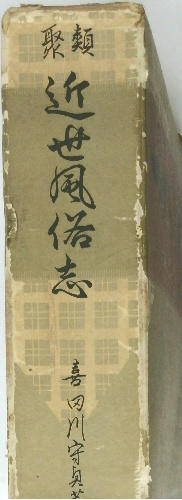 類聚
近世風俗志
喜田川守貞